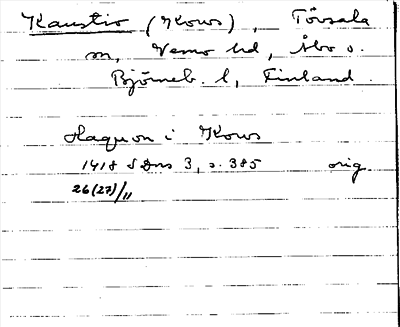 Kaustio (Kows), Tövsala
sn, Vemo hd, Åbo o.
Björneb. l, Finland.
Haquon i Kows
1418 SDns 3, s. 385 orig.
26(27)/11